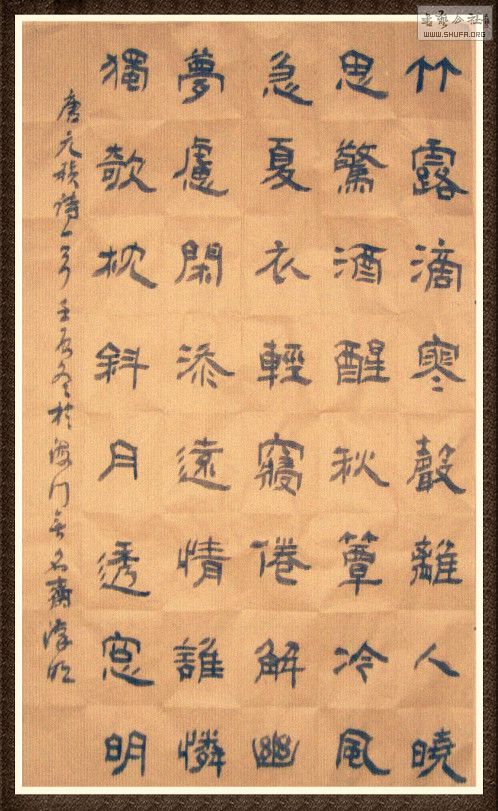 竹露滴寒聲離人曉
思驚酒醒秋簟冷風
急夏衣輕寢倦解幽
夢慮閑添遠情誰憐
獨欹枕斜月透窓明
唐元稹诗一首壬辰冬於海门无名齋
书艺公社
WWW.SHUFA.ORG